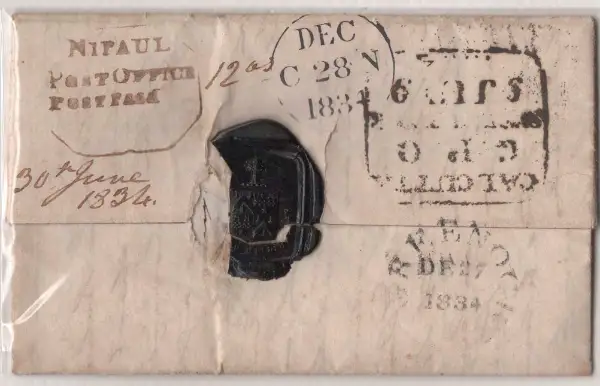 NIPAUL
POST OFFICE
POST PAID
12 as
30th June
1834.
DEC
C 28 N
1834
G.P.O
CALCUTTA
DE 27
1834